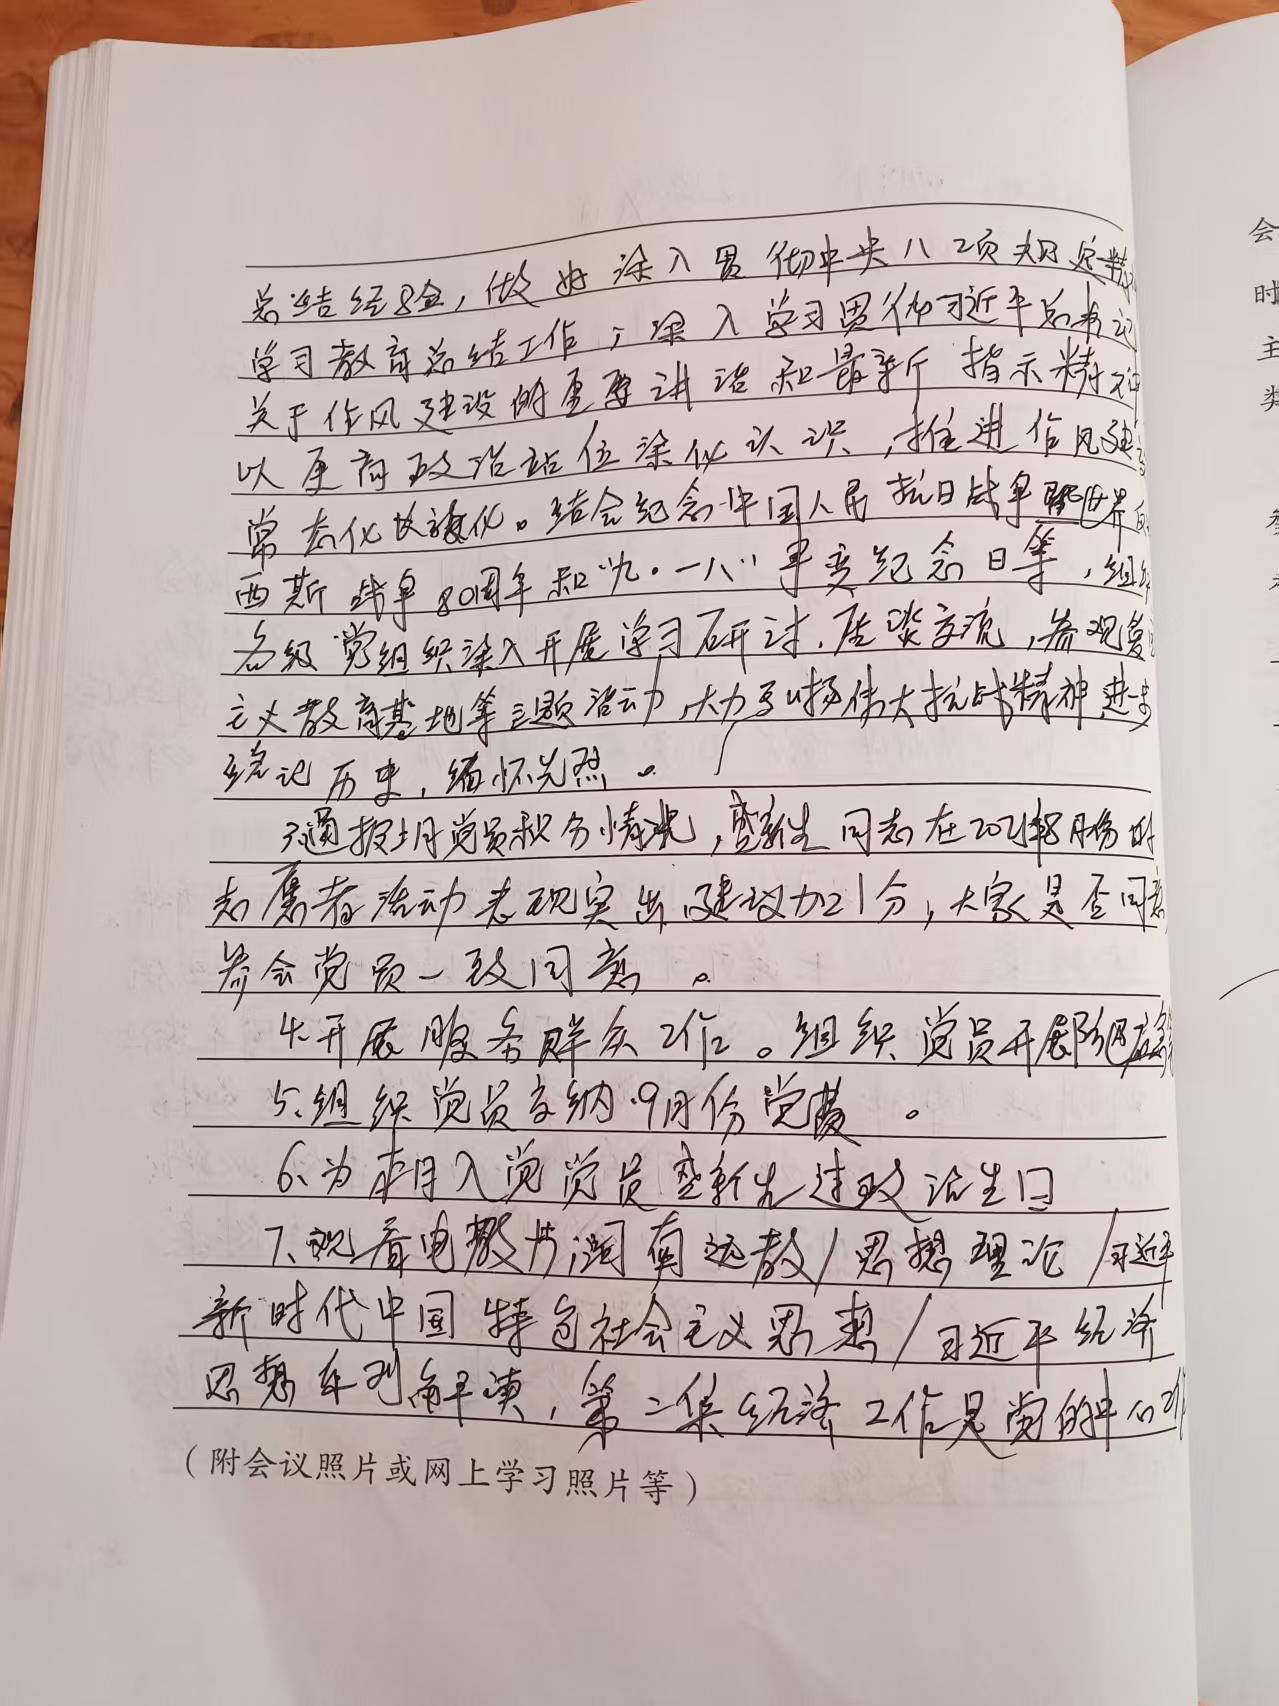 总结经验，做好深入贯彻中央八项规定精神
学习教育总结工作，深入学习贯彻习近平总书记
关于作风建设的重要讲话和最新指示精神
以更高政治站位深化认识，推进作风建设
常态化长效化。结合纪念中国人民抗日战争暨世界反
西斯战争80周年和"九·一八"事变纪念日等，组织
各级党组织深入开展学习研讨，座谈交流，参观爱国
主义教育基地等主题活动，大力弘扬伟大抗战精神进一步
铭记历史，缅怀先烈。
3.通报上月党员积分情况，新生同志在2025年8月份的
志愿者活动表现突出，建议加21分，大家是否同意
参会党员一致同意。
4.开展服务群众工作。组织党员开展
5、组织党员交纳9月份党费。
6、为本月入党党员新生过政治生日
7、观看电教片，远教/思想理论/习近平
新时代中国特色社会主义思想/习近平经济
思想系列解读，第二集经济工作是党的中心工作
（附会议照片或网上学习照片等）
会
时
主
类